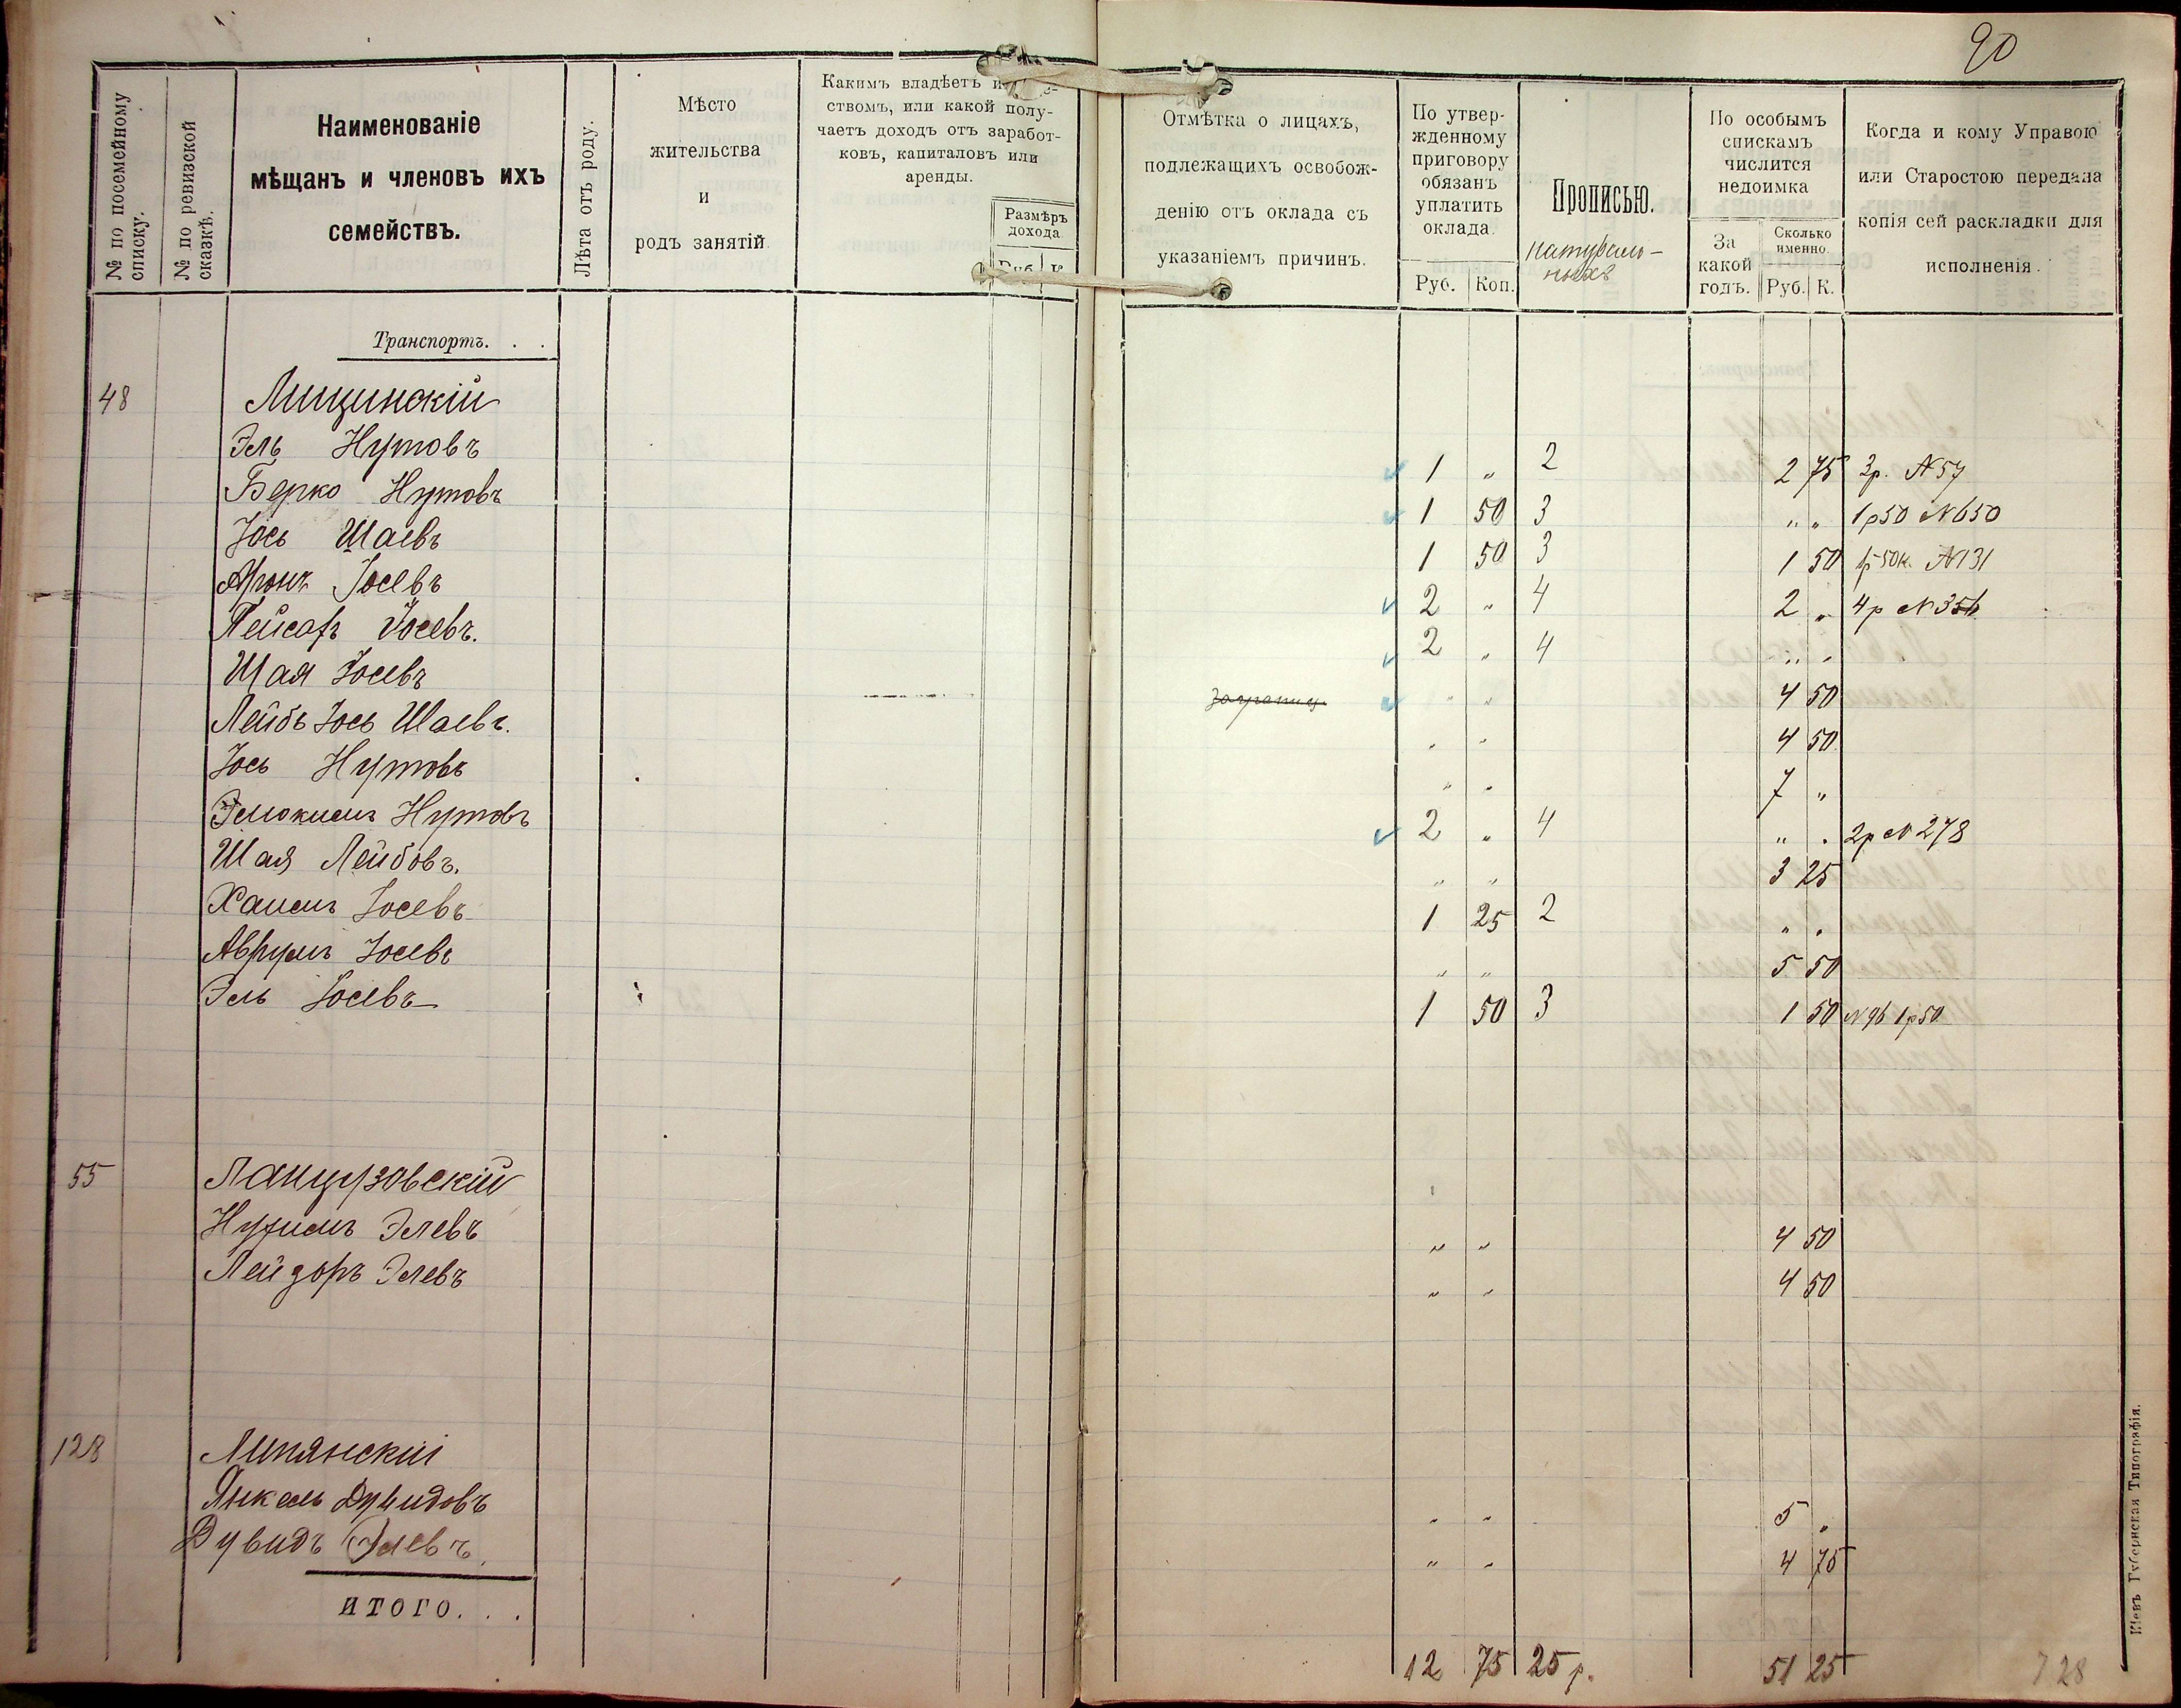 90
№ по посемейному списку.
№ по ревизской сказкѣ.
Наименованіе
мѣщанъ и членовъ ихъ
семействъ.
Лѣта отъ роду.
Мѣсто
жительства
и
родъ занятій.
Какимъ владѣетъ
ствомъ, или какой полу-
чаетъ доходъ отъ заработ-
ковъ, капиталовъ или
аренды.
Размѣръ
дохода
Руб. К.
Отмѣтка о лицахъ,
подлежащихъ освобож-
денію отъ оклада съ
указаніемъ причинъ.
По утвер-
жденному
приговору
обязанъ
уплатить
оклада.
Руб. Коп.
Прописью.
натураль-
ныхъ
По особымъ
спискамъ
числится
недоимка
За
какой
годъ.
Сколько
именно.
Руб. К.
Когда и кому Управою
или Старостою передана
копія сей раскладки для
исполненія.
Транспортъ. . .
48 Лищинскій
Эль Нутовъ 1 " 2 2 75 3р. №57
Берко Нутовъ 1 50 3 " " 1р50 №650
Іось Шаевъ 1 50 3 1 50 1р50к №131
Аронъ Іосевъ 2 " 4 2 " 4р №356
Пейсахъ Іосевъ. 2 " 4 " "
Шая Іосевъ заграниц. " " 4 50
Лейбъ Іось Шаевъ. " " 4 50
Іось Нутовъ " " 7 "
Нутовъ 2 " 4 " " 2р №278
Шая Лейбовъ. " " 3 25
Хаимъ Іосевъ 1 25 2 " "
Аврумъ Іосевъ " " 5 50
Эль Іосевъ 1 50 3 1 50 №96 1р50
55 Ланцузовскій
Нухимъ Элевъ " " 4 50
Лейзоръ Элевъ " " 4 50
128 Липянскій
Янкель Дувидовъ " " 5 "
Дувидъ Элевъ " " 4 75
ИТОГО. . .
12 75 25 р. 51 25 728
Кіевъ Губернская Типографія.